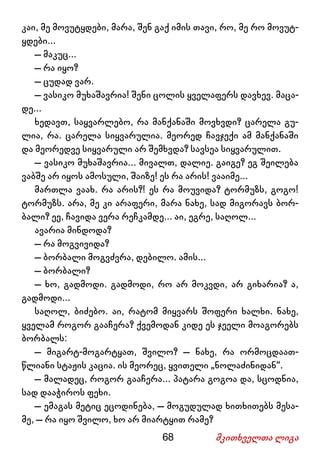 კაი, მე მოვუტყდები, მარა, შენ გაქ იმის თავი, რო, მე რო მოვუტ-
ყდები...
— მაკუც...
— რა იყო?
— ცუდად ვარ.
— ვასიკო მუხაშავრია! შენი ცოლის ყველაფერს დავხევ. მაცა-
დე...
ხედავთ, საყვარლებო, რა მანქანაში მოვხვდი? ცარელა გუ-
ლია, რა. ცარელა სიყვარულია. მეორედ ჩავჯექი ამ მანქანაში
და მეორედვე სიყვარული არ შემხვდა? სავსეა სიყვარულით.
— ვასიკო მუხაშავრია... მივალთ, დალიე. გაიგე? ეგ შეილება
ვაბშე არ იყოს ამოსული, შაიზე! ეს რა არის! ვააიმე...
მართლა ვაახ. რა არის?! ეს რა მოუვიდა? ტორმუზს, გოგო!
ტორმუზს. არა, მე კი არაფერი, მარა ნახე, სად მიგორავს ბორ-
ბალი? ეე, ჩავიდა ვერა რეჩკამდე... აი, ეგრე, საღოლ...
ავარია მინდოდა?
— რა მოგვივიდა?
— ბორბალი მოგვძვრა, დებილო. ამის...
— ბორბალი?
— ხო, გადმოდი. გადმოდი, რო არ მოკვდი, არ გიხარია? ა,
გადმოდი...
საღოლ, ბიძებო. აი, რატომ მიყვარს შოფერი ხალხი. ნახე,
ყველამ როგორ გააჩერა? ქვემოდან კიდე ეს ჯეელი მოაგორებს
ბორბალს:
— მიგარტ-მოგარტყათ, შვილო? — ნახე, რა ორმოცდაათ-
წლიანი სტაჟის კაცია. ის მეორეც, ყვითელი „ნოლაძინიდან“.
— მალადეც, როგორ გააჩერა... პატარა გოგოა და, სცოდნია,
სად დააჭიროს ფეხი.
— ემაგას მეტიც ეცოდინება, — მოგუდულად ხითხითებს მესა-
მე, — რა იყო შვილო, ხო არ მიარტყით რამე?
68 მკითხველთა ლიგა